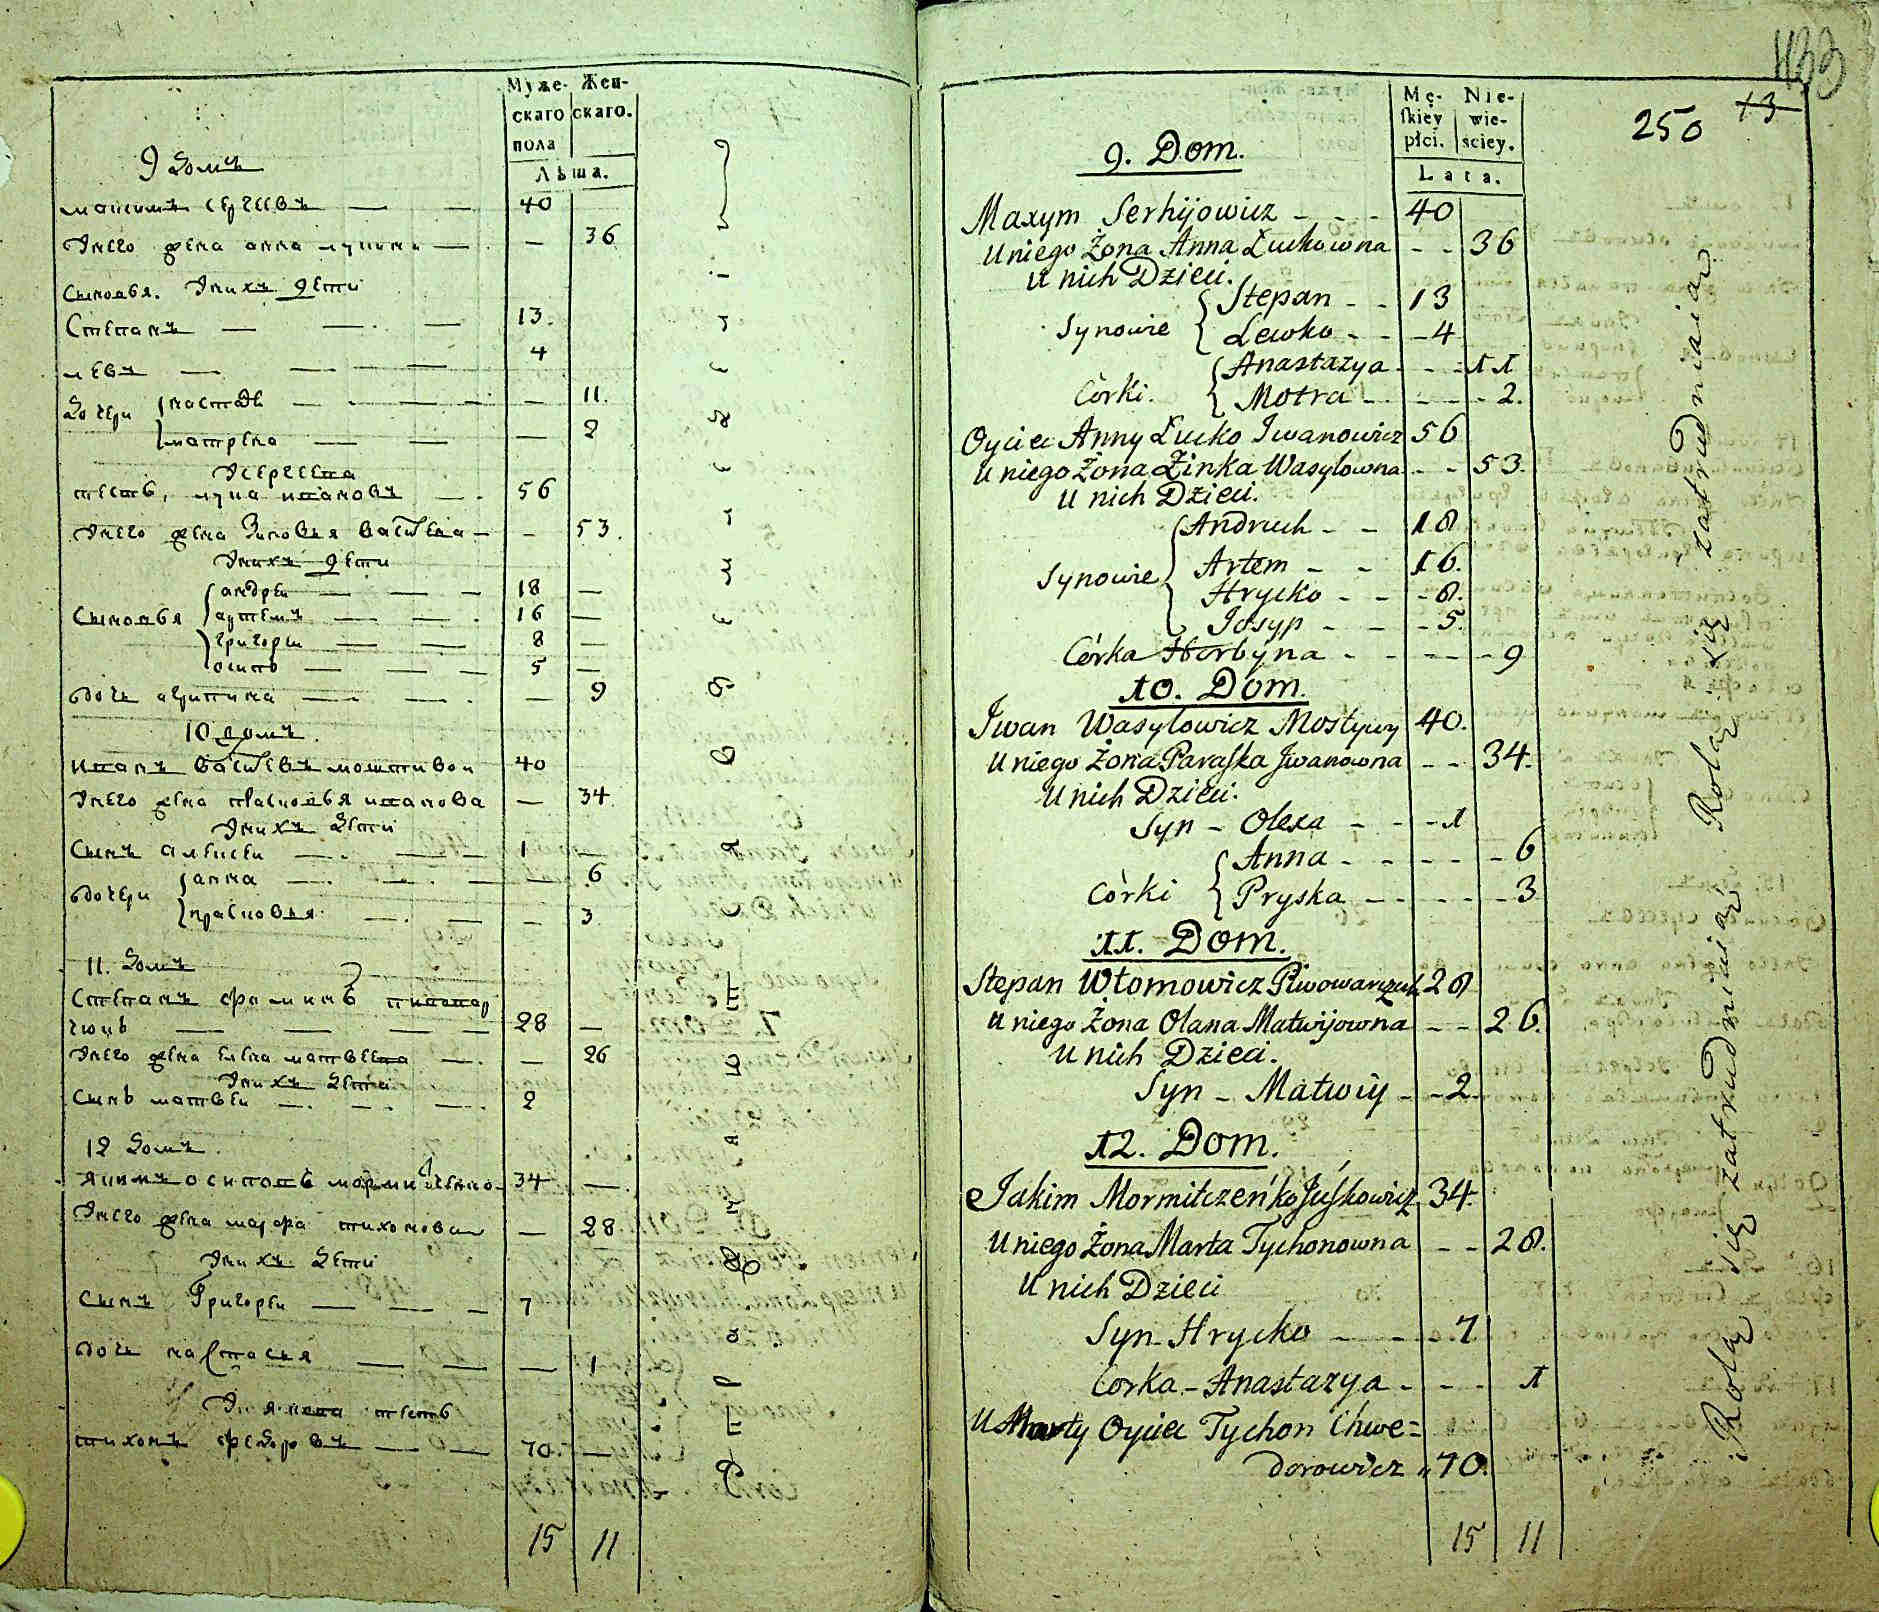 Муже-
скаго
пола
Жен-
скаго.
Лѣта.
9 домъ
максимъ сергеевъ — — 40
Унего жена анна лукина — — 36
Сыновья. Унихъ дети
Степанъ — — — 13.
левъ — — — 4
дочери настася — — — — 11.
матрена — — — 2
тесть, лука ивановъ — 56
Унего жена Зиновья васильева — — 53.
Унихъ дети
андреи — — — 18 —
Сыновья артемъ — — 16 —
григореи — — 8 —
осипъ — — — 5 —
дочь — — — 9
10 домъ.
иванъ васильевъ 40
Унего жена прасковья иванова — 34
Унихъ дети
Сынъ алексеи — — — 1 —
дочери анна — — — — 6
прасковья — — — 3
11. домъ
Степанъ фоминъ пивовар
чюкъ — — — — 28 —
Унего жена елена матвеева — — 26
Унихъ дети
Сынъ матвеи — — — 2
12 домъ.
якимъ осиповъ 34 —
Унего жена марфа тихонова — 28
Унихъ дети
Сынъ Григореи — — — 7
дочь настасья — — — 1
тесть
тихонъ федоровъ — — 70. —
15 11
433
250 13
Mę-
skiey
płci.
Nie-
wie-
sciey.
Lata.
9. Dom.
Maxym Serhijowicz - - - 40
U niego Żona Anna Łuckowna - - 36
U nich Dzieci.
Stepan - - 13
Synowie Lewko - - - 4
Anastazya - - - 11
Córki. Motra - - - - 2.
Oyciec Anny Łucko Iwanowicz 56
U niego Żona Zinka Wasylowna - - 53.
U nich Dzieci.
Andruch - - 18
Artem - - 16.
Synowie Hrycko - - - 8.
Josyp - - - 5.
Córka Horbyna - - - - - 9
10. Dom.
Iwan Wasylowicz Mostywy 40.
U niego Żona Paraska Iwanowna - - 34.
U nich Dzieci.
Syn - Olexa - - - 1
Anna - - - - - 6
Córki Pryska - - - - - 3
11. Dom.
Stepan Wtomowicz Piwowarczuk 28
U niego Żona Olana Matwijowna - - 26.
U nich Dzieci.
Syn - Matwiy - - 2
12. Dom.
Jakim Mormitczeńko Juskowicz 34.
U niego Żona Marta Tychonowna - - 28.
U nich Dzieci
Syn - Hrycko - - - 7
Corka - Anastazya - - - 1
U Marty Oyciec Tychon Chwe=
dorowicz 70.
15 11
Rolą się zatrudniaią Rolą się zatrudniaią